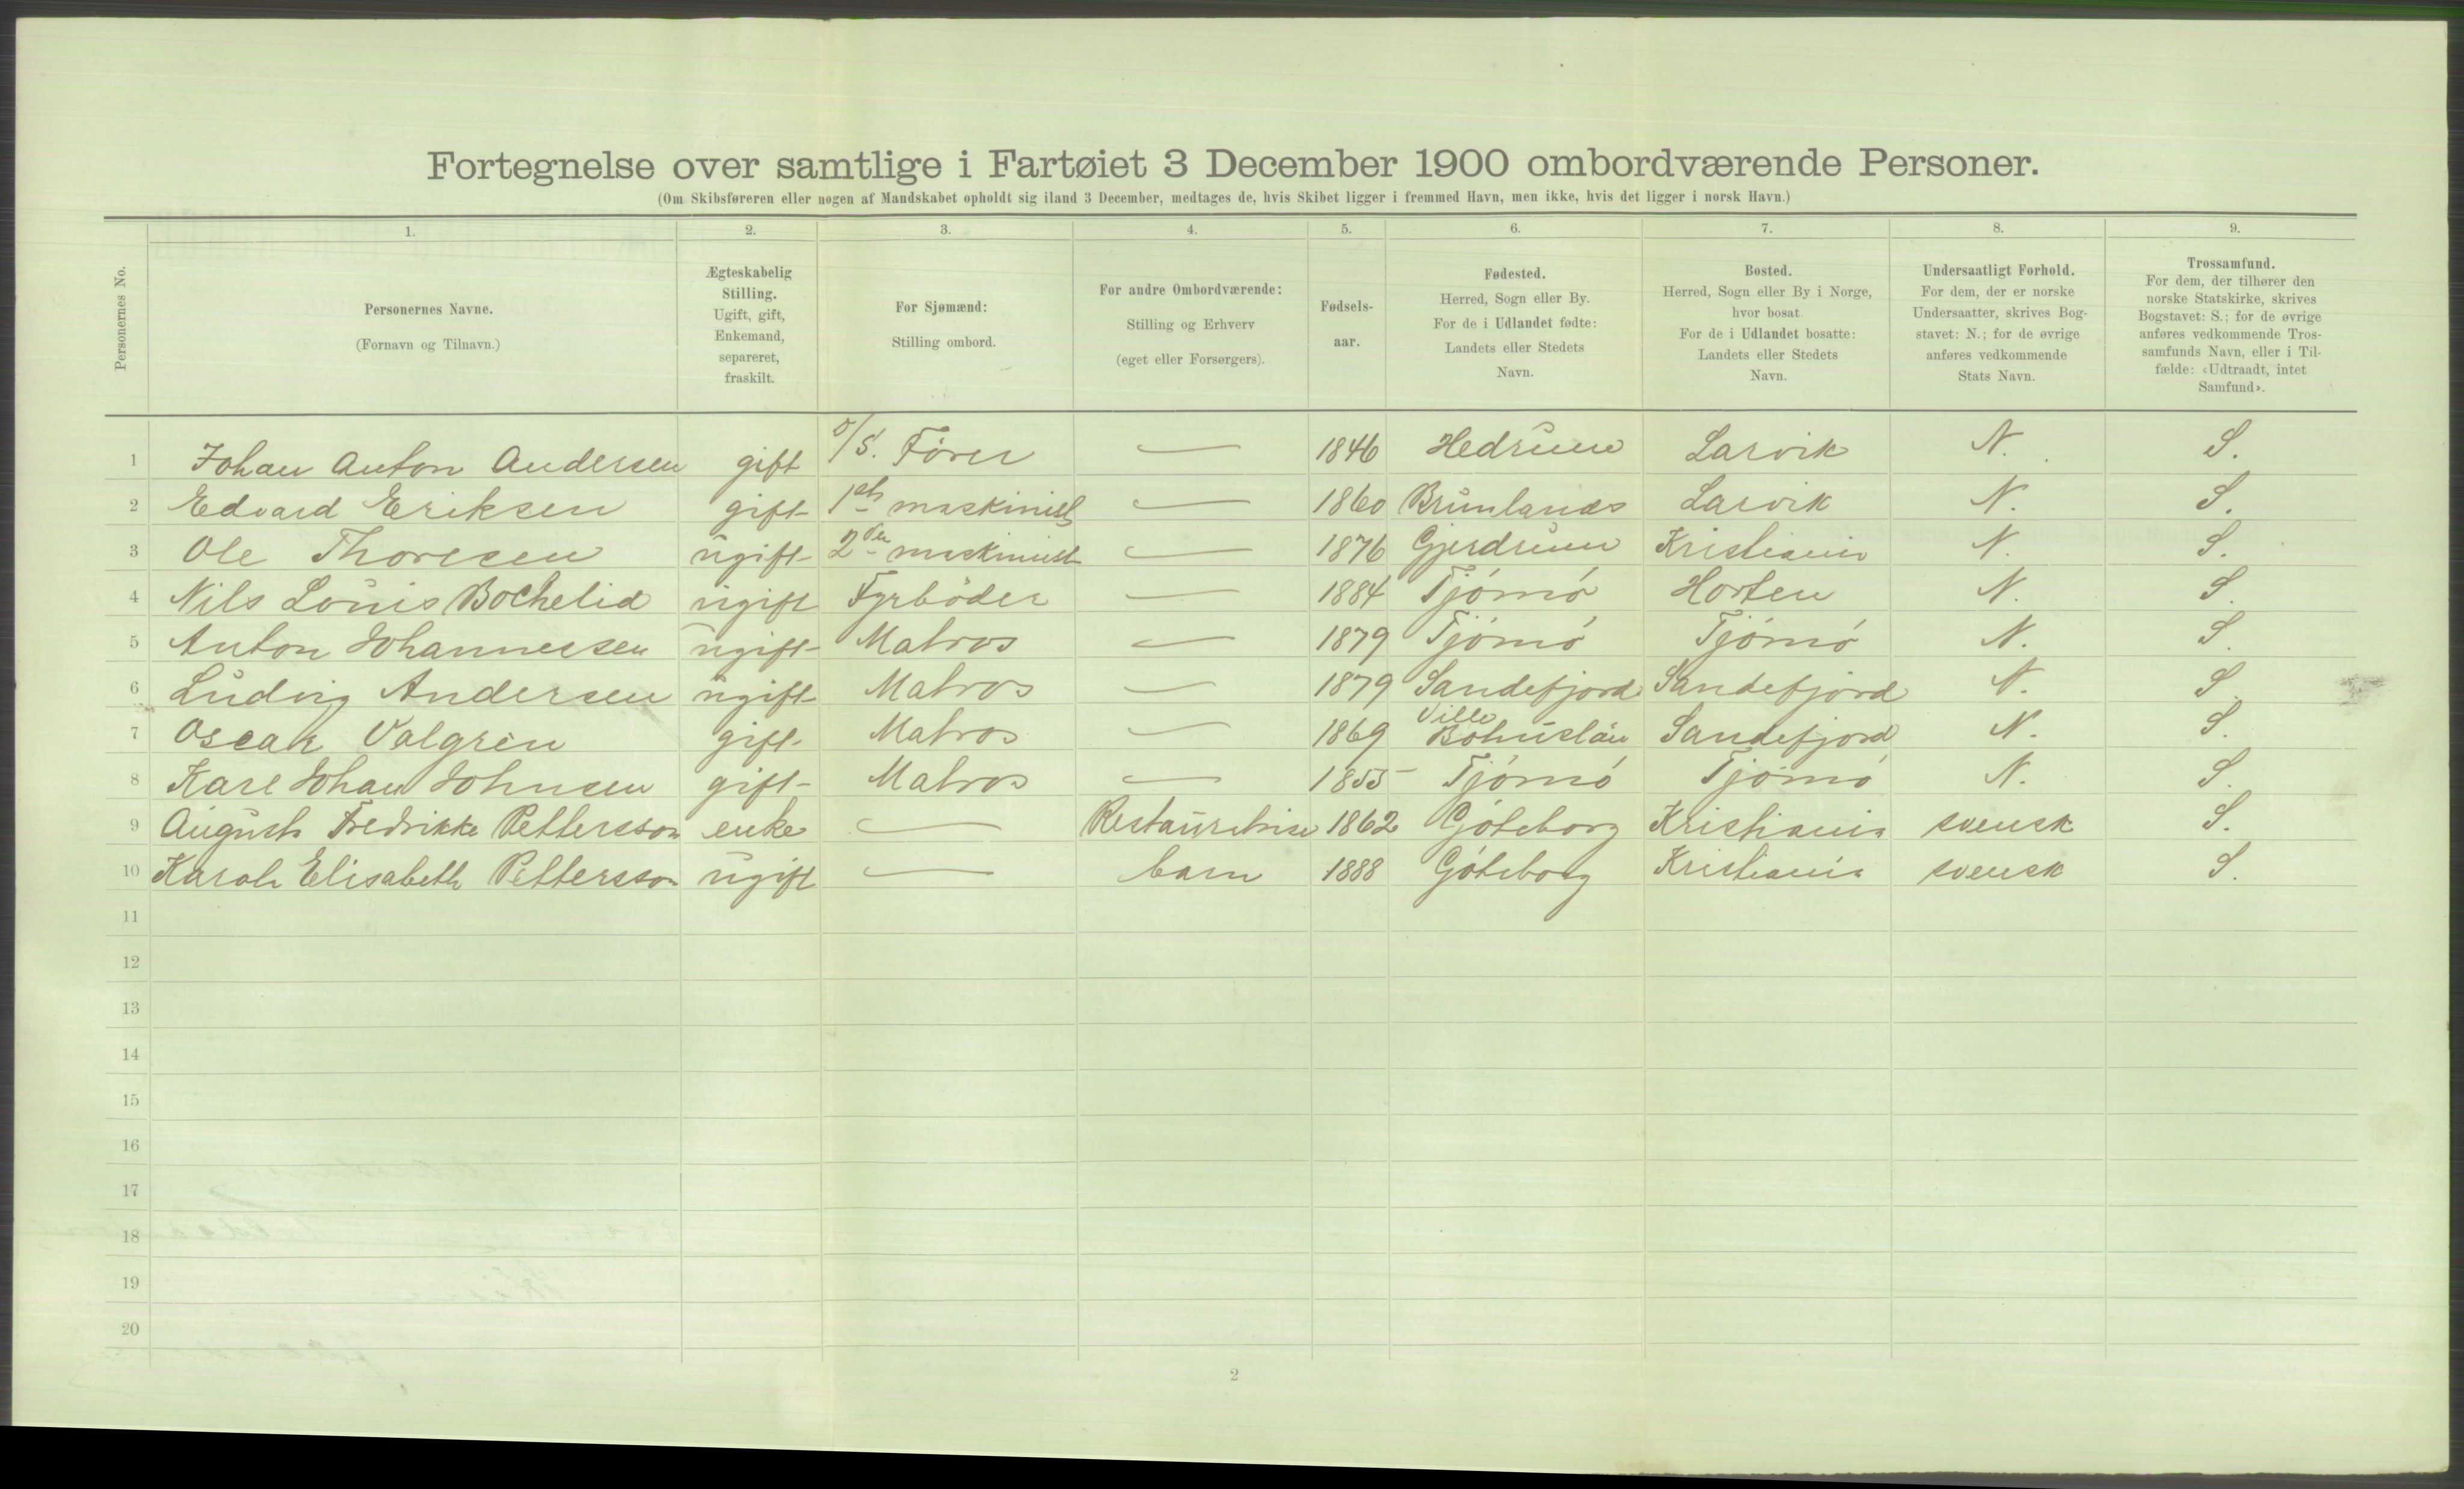 Fortegnelse over samtlige i Fartøiet 3 December 1900 ombordværende Personer.
(Om Skibsføreren eller nogen af Mandskabet opholdt sig iland 3 December, medtages de, hvis Skibet ligger i fremmed Havn, men ikke, hvis det ligger i norsk Havn.)
1. 2. 3. 4. 5. 6. 7. 8. 9.
Personernes No.
Personernes Navne.
(Fornavn og Tilnavn.)
Ægteskabelig
Stilling.
Ugift, gift,
Enkemand,
separeret,
fraskilt.
For Sjømænd:
Stilling ombord.
For andre Ombordværende:
Stilling og Erhverv
(eget eller Forsørgers).
Fødsels-
aar.
Fødested.
Herred, Sogn eller By.
For de i Udlandet fødte:
Landets eller Stedets
Navn.
Bosted.
Herred, Sogn eller By i Norge,
hvor bosat.
For de i Udlandet bosatte:
Landets eller Stedets
Navn.
Undersaatligt Forhold.
For dem, der er norske
Undersaatter, skrives Bog-
stavet: N.; for de øvrige
anføres vedkommende
Stats Navn.
Trossamfund.
For dem, der tilhører den
norske Statskirke, skrives
Bogstavet: S.; for de øvrige
anføres vedkommende Tros-
samfunds Navn, eller i Til-
fælde: «Udtraadt, intet
Samfund».
1 Johan Anton Andersen gift Fører — 1846 Hedrum Larvik N. S.
2 Edvard Eriksen gift 1ste maskinist — 1860 Brunlanæs Larvik N. S.
3 Ole Thoresen ugift 2den maskinist — 1876 Gjerdrum Kristiania N. S.
4 Nils Louis Bochelid ugift Fyrböder — 1884 Tjömö Horten N. S.
5 Anton Johannesen ugift Matros — 1879 Tjömö Tjömö N. S.
6 Ludvig Andersen ugift Matros — 1879 Sandefjord Sandefjord N. S.
7 Oscar Valgren gift Matros — 1869 Ville Bohuslän Sandefjord N. S.
8 Karl Johan Johnsen gift Matros — 1855 Tjömö Tjömö N. S.
9 Augusta Fredrikke Pettersson enke — Restauratrise 1862 Göteborg Kristiania svensk S.
10 Karoli Elisabeth Pettersson ugift — barn 1888 Göteborg Kristiania svensk S.
11
12
13
14
15
16
17
18
19
20
2